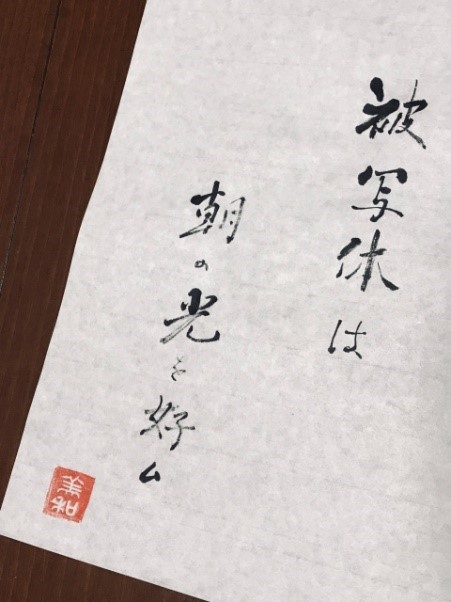 被写体は
朝の光を好ム
美和